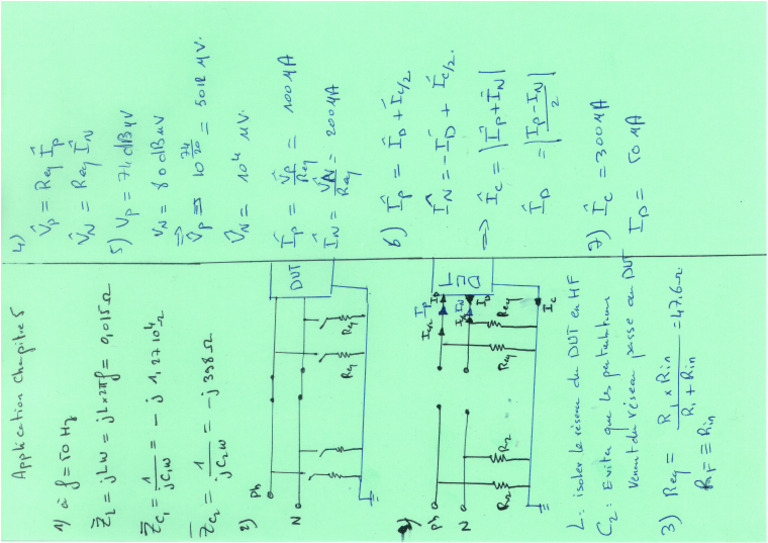 Application Chapitre 5
1) à f = 50 Hz
Z̄L = jLω = jL×2πf = 0,015Ω
Z̄C1 = 1/jC1ω = -j 1,27 10⁴
Z̄C2 = 1/jC2ω = -j 398 Ω
2)
Ph
N
Req
Req
DUT
Ph
N
R2
R2
Req
Req
Ic/2
Ic
L : isoler le réseau du DUT en HF
C2 : Eviter que les perturbations
venant du réseau passe au DUT
3) Req = R1 × Rin / R1 + Rin = 47.6 Ω
4)
V̂p = Req Îp
V̂N = Req ÎN
5) Vp = 74 dBμV
VN = 80 dBμV
⇒ V̂p = 10^74/20 = 5012 μV.
V̂N = 10⁴ μV.
Îp = V̂p/Req = 100 μA
ÎN = V̂N/Req = 200 μA
6) Îp = ÎD + Îc/2
ÎN = -ÎD + Îc/2.
⇒ Îc = |Îp + ÎN|
ÎD = |Ip - IN / 2|
7) Îc = 300 μA
ID = 50 μA